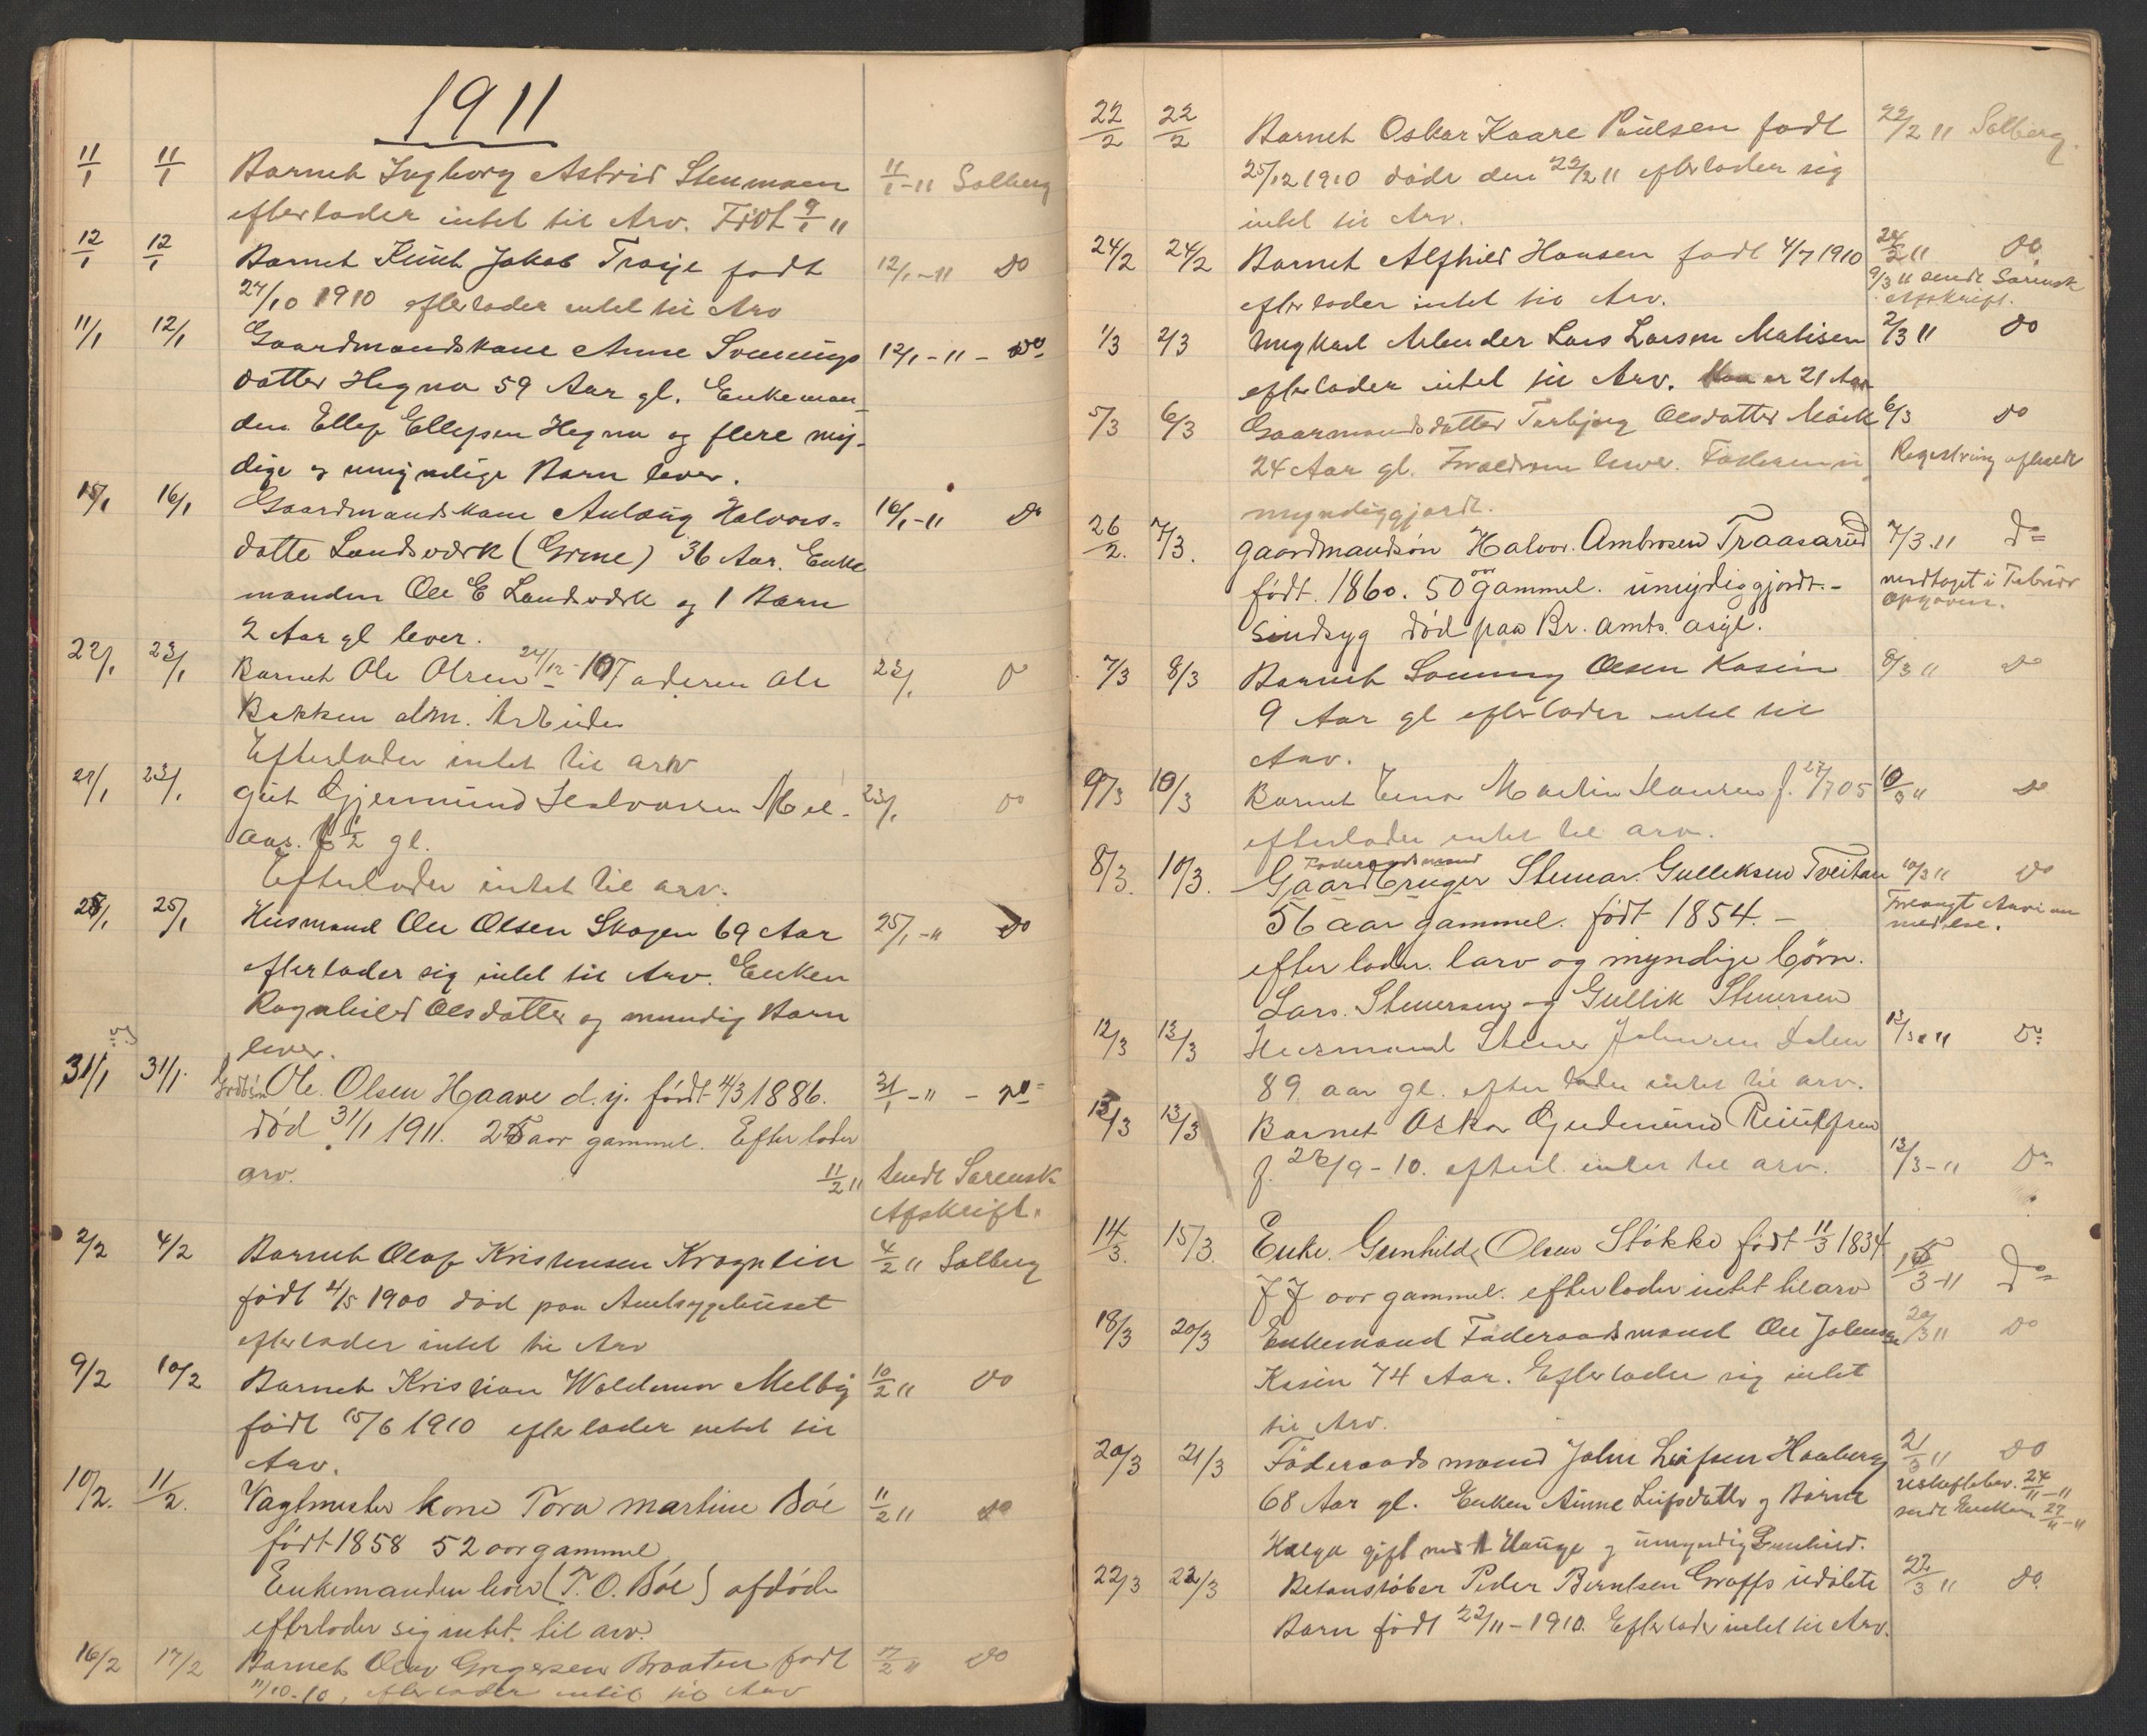 1911
11/1 11/1 Barnet Ingborg Astrid Stenmoen 11/1-11 Solberg
efterlader intet til Arv. Född 9/1 11
12/1 12/1 Barnet Knut Jakob Traije født 12/1-11 Do
27/10 1910 efterlader intet til Arv
11/1 12/1 Gaardmandskone Anne Svennungs 12/1-11 - Do
datter Hegna 59 Aar gl. Enkeman-
den Ellef Ellefsen Hegna og flere myn-
dige og umyndige Barn lever.
15/1 16/1 Gaardmandskone Anlaug Halvors- 16/1-11 Do
datte Landsværk (Grine) 36 Aar. Enke
manden Ole E Landsværk og 1 Barn
2 Aar gl lever.
22/1 23/1 Barnet Ole Olsen 24/12-10 Faderen Ole 23/1 D
Bakken alm. Arbeider
Efterlader intet til arv
21/1 23/1 Gut Gjermund Halvorsen Mel- 23/1 Do
aas. 6 1/2 gl.
Efterlader intet til arv.
25/1 25/1 Husmand Ole Olsen Skogen 69 Aar 25/1-11 Do
efterlader sig intet til Arv. Enken
Ragnhild Olsdatter og mundig Barn
lever.
31/1 31/1. Ole Olsen Haave d.y. født 4/3 1886. 31/1-11 - Do
død 31/1 1911. 25 aar gammel. Efterlader
arv. 11/2 11 Sendt Sorensk.
Afskrift.
2/2 4/2 Barnet Olaf Kristensen Kragnlien 4/2 11 Solberg
født 4/5 1900 død paa Amtsygehuset
efterlader intet til Arv
9/2 10/2 Barnet Kristian Waldemar Melby 10/2 11 Do
født 15/6 1910 efterlader intet til
Arv.
10/2. 11/2. Vagtmester kone Tora Martine Bøe 11/2 11 Do
født 1858 52 aar gammel
Enkemanden lever (T. O. Bøe) afdøde
efterlader sig intet til arv.
16/2 17/2 Barnet Olav Gregersen Braaten født 17/2 11 Do
11/10-10, efterlader intet til Arv
22/2 22/2 Barnet Oskar Kaare Paulsen født 22/2 11 Solberg.
25/12 1910 døde den 22/2 11 efterlader sig
intet til Arv.
24/2 24/2 Barnet Alfhild Hansen født 4/7 1910 24/2 11 Do
efterlader intet til Arv. 9/3 11 sendt Sorensk
Afskrift.
1/3 2/3 Ungkarl Arbeider Lars Larsen Matisen 2/3 11 Do
efterlader intet til Arv. Han er 21 Aar
5/3 6/3 Gaarmandsdatter Torbjørg Olsdatter Mörk 6/3 Do
24 Aar gl. Forældrene lever. Registrering afholdt
myndiggjordt.
26/2. 7/3. Gaardmandsön Halvor. Ambrosen Traasarud 7/3.11 Do
født. 1860. 50 aar gammel. umyndiggjordt.- medtaget i Februar
Sindsyg død paa Br. amts. asyl. Opgaven.
7/3 8/3 Barnet Sonning Olsen Kasin 8/3 11 Do
9 Aar gl efterlader intet til
Arv.
9/3 10/3 Barnet Einar Martin Hansen f. 27/7 05 10/3 11 Do
efterlader intet til arv.
Føderaadsmand
8/3. 10/3. Gaardbruger Steinar. Gulleksen Tveitan 10/3 11 Do
56 aar gammel. født 1854.-
efterlader. arv og myndige børn.
Lars. Steinersen og Gullik Steinersen
12/3 13/3 Husmand Steiner Johnsen Dalen 13/3 11 Do
89 aar gl. efterlader intet til arv.
13/3 13/3 Barnet Oskar Gudmund
f. 26/9-10. efterl. intet til arv. 13/3-11 Do
14/3. 15/3. Enke. Gunhild Olsen Stökke født 11/3 1834 15/3-11 Do
77 aar gammel. efterlader intet til arv
18/3 20/3 Enkemand Føderaadsmand Ole Johnsen 20/3 11 Do
Kasin 74 Aar. Efterlader sig intet
til Arv.
20/3 21/3 Føderaadsmand John Leifsen Haaberg 21/3 11 Do
68 Aar gl. Enken Anne Leifsdatter og Barne 24/11-11
sendt Enken 27/11-11
Helga gift med A Hauge og umyndig Gunhild.
22/3 22/3 Betonstøber Peder Berntsen Graffs udøbte 22/3 11 Do
Barn født 22/11-1910. Efterlader intet til Arv.